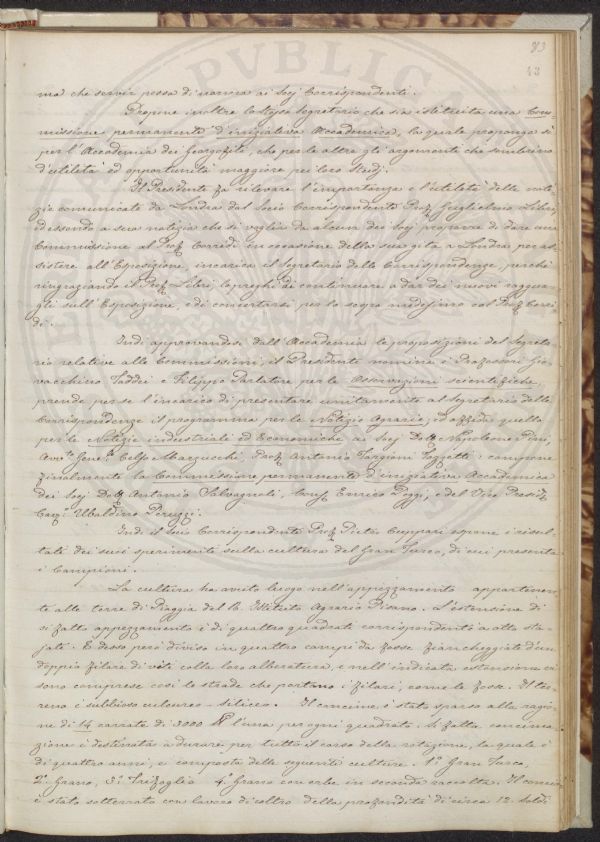 83
48
ma che servir possa di norma ai Socj Corrispondenti.
Propone inoltre lo stesso Segretario che sia istituita una Com-
missione permanente d'iniziativa Accademica, la quale proponga sì
per l'Accademia dei Georgofili, che per le altre gli argomenti che sembrino
d'utilità ed opportunità maggiore pei loro studj.
Il Presidente fa rilevare l'importanza e l'utilità delle noti-
zie comunicate da Londra dal Socio Corrispondente Prof. Guglielmo Libri,
ed essendo a sua notizia che si voglia da alcuni dei Socj proporre di dare una
Commissione al Prof. Corridi in occasione della sua gita a Londra per as-
sistere all'Esposizione, incarica il Segretario delle Corrispondenze, perchè
ringraziando il Prof. Libri, lo preghi di continuare a dar dei nuovi raggua-
gli sull'Esposizione, e di concertarsi per lo scopo medesimo col Prof. Corri-
di.
Indi approvandosi dall'Accademia le proposizioni del Segreta-
rio relative alle Commissioni, il Presidente nomina i Professori Gio-
vacchino Taddei e Filippo Parlatore per le Osservazioni scientifiche,
prende per se l'incarico di presentare unitamente al Segretario delle
Corrispondenze il programma per le Notizie Agrarie, ed affida quello
per le Notizie industriali ed Economiche ai Socj Dott. Napoleone Pini,
Avv.to Gene.le Celso Marzucchi, Prof. Antonio Targioni Tozzetti: compone
finalmente la Commissione permanente d'iniziativa Accademica
dei Socj Dott. Antonio Salvagnoli, Enrico Poggi, e del Vice Presid.
Cav. Ubaldino Peruzzi.
Indi il Socio Corrispondente Prof. Pietro Cuppari espone i risul-
tati dei suoi sperimenti sulla cultura del Gran Turco, di cui presenta
i Campioni.
La cultura ha avuto luogo nell'appezzamento appartenen-
te alla torre di Piaggia del R. Istituto Agrario Pisano. L'estensione di
sì fatto appezzamento è di quattro quadrati corrispondenti a otto sta-
jate. È desso poi diviso in quattro campi da fosse fiancheggiate d'un
doppio filare di viti colla loro alberatura, e nell'indicata estensione vi
sono comprese così le strade che portano i filari, come le fosse. Il ter-
reno è subbioso calcareo-siliceo. Il concime è stato sparso alla ragio-
ne di 14 carrate di 3000 ℔ l'una per ogni quadrato. Sì fatta concima-
zione è destinata a durare per tutto il corso della rotazione, la quale è
di quattro anni, e composta delle seguenti culture. 1° Gran Turco,
2° Grano, 3° Trifoglio 4° Grano con erbe in seconda raccolta. Il concio
è stato sotterrato con lavoro di coltro della profondità di circa 12. soldi